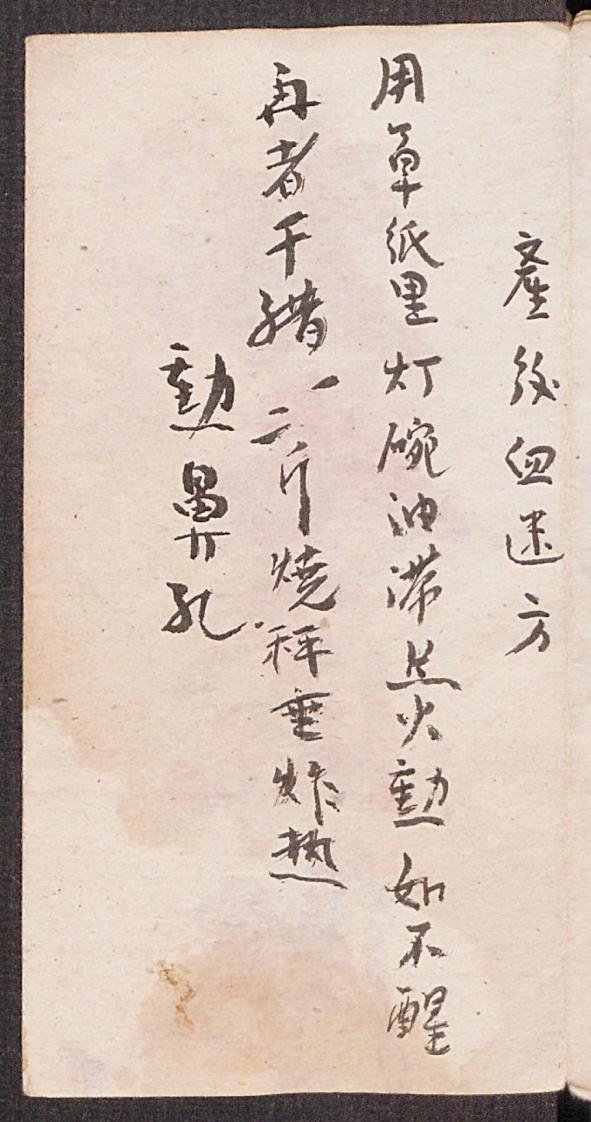 產後血迷方
用草紙里灯碗油滞点火勳如不醒
再者干醋一二斤燒秤重炸热
勳鼻孔